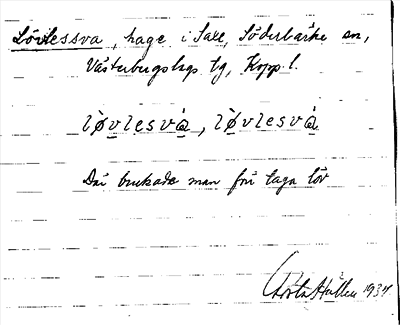 Lövlessva, hage i Saxe, Söderbärke sn,
Västerbergslags tg, Kopp. l.
lø̀vlesvà̱, lø̀vlesvȧ̀
Där brukade man förr taga löv
Hallen 1934